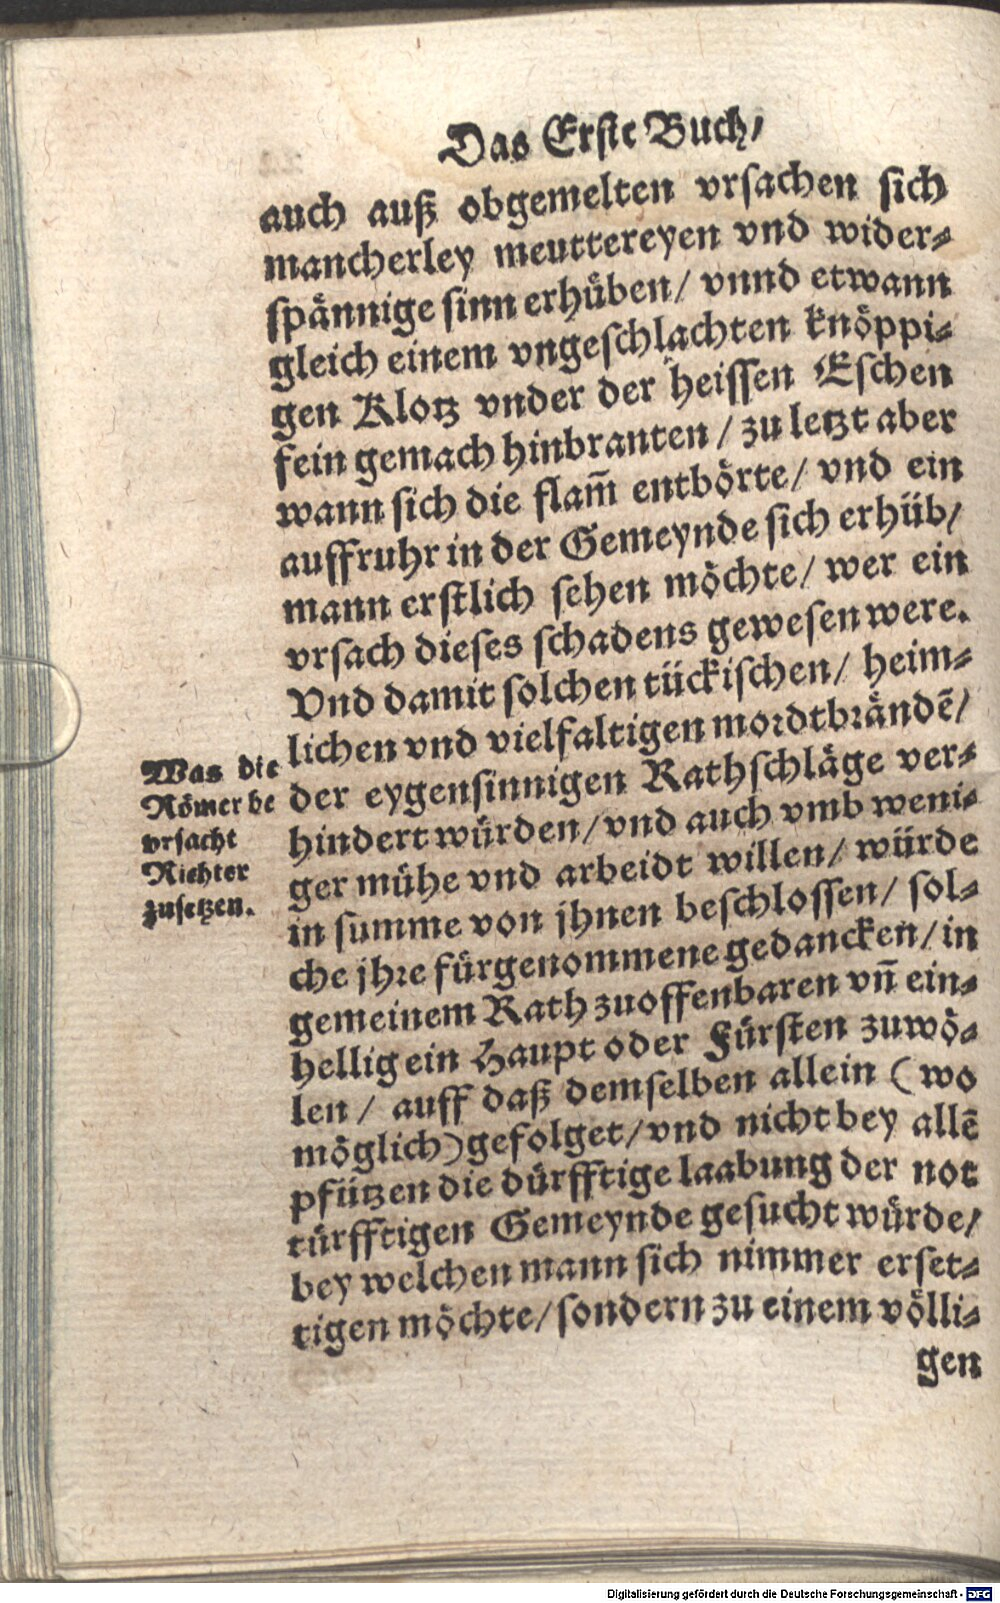 Das Erste Buch/
auch auß obgemelten vrsachen sich
mancherley meuttereyen vnd wider-
spännige sinn erhüben/ vnnd etwann
gleich einem vngeschlachten knöppi-
gen Klotz vnder der heissen Eschen
fein gemach hinbranten/ zu letzt aber
wann sich die flam̄ entbörte/ vnd ein
auffruhr in der Gemeynde sich erhüb/
mann erstlich sehen möchte/ wer ein
vrsach dieses schadens gewesen were.
Vnd damit solchen tückischen/ heim-
lichen vnd vielfaltigen mordtbrändē/
der eygensinnigen Rathschläge ver-
hindert würden/ vnd auch vmb weni-
ger mühe vnd arbeidt willen/ würde
in summe von jhnen beschlossen/ sol-
che jhre fürgenommene gedancken/ in
gemeinem Rath zuoffenbaren vn̄ ein-
hellig ein Haupt oder Fürsten zuwö-
len/ auff daß demselben allein (wo
möglich) gefolget/ vnd nicht bey allē
pfützen die dürfftige laabung der not
türfftigen Gemeynde gesucht würde/
bey welchen mann sich nimmer erset-
tigen möchte/ sondern zu einem völli-
gen
Was die
Römer be
vrsacht
Richter
zusetzen.
Digitalisierung gefördert durch die Deutsche Forschungsgemeinschaft - DFG